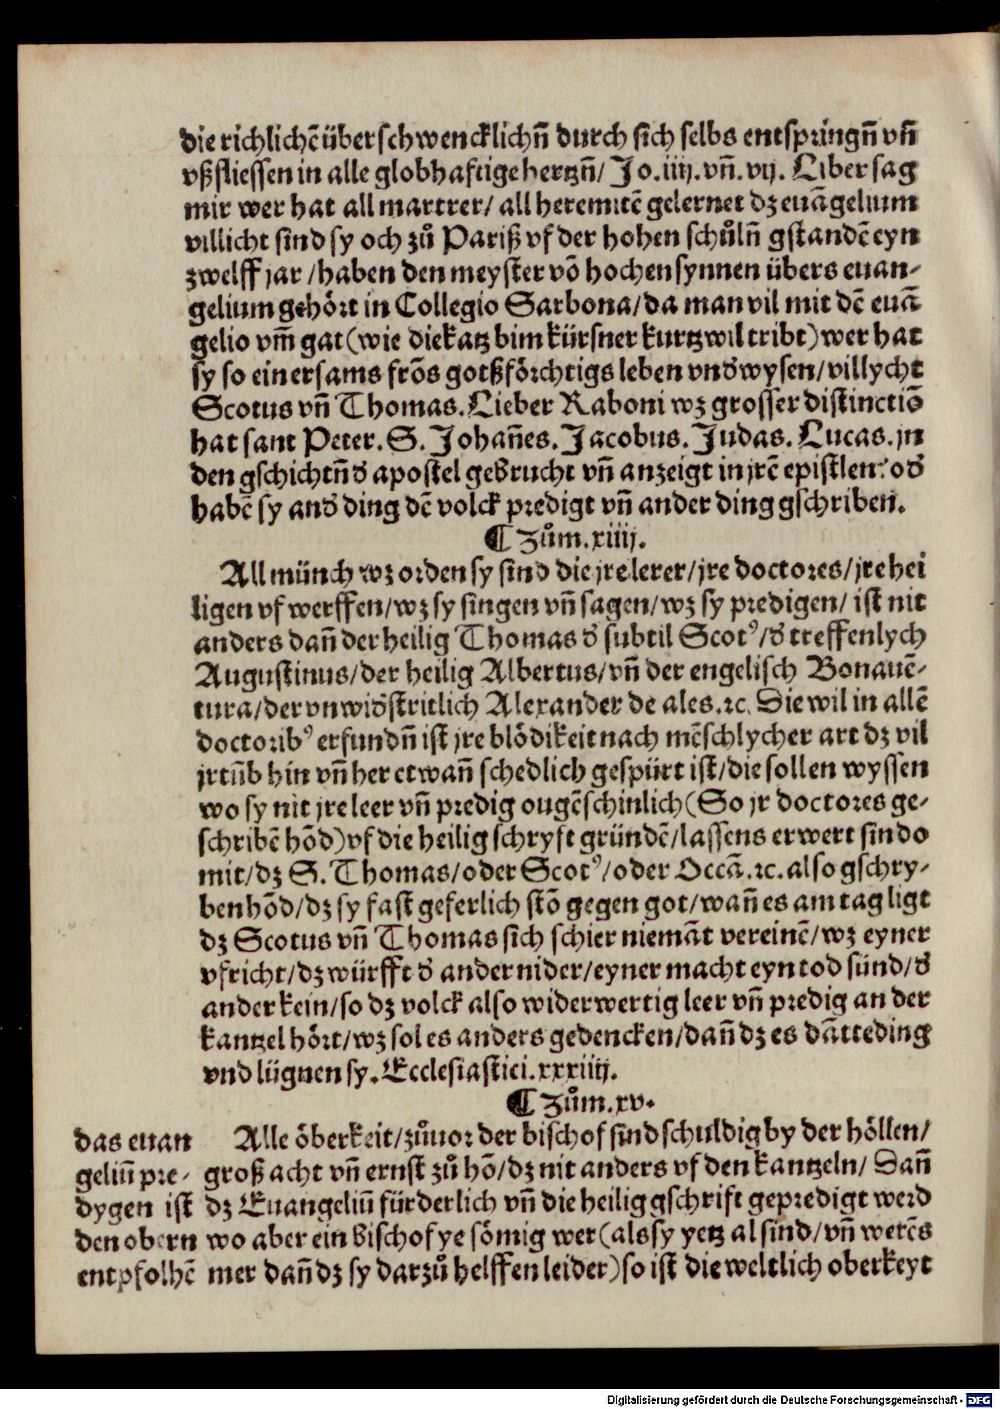 die richlichē überschwencklichñ durch sich selbs entspringñ vñ
vßfliessen in alle globhaftige hertzñ/ Jo.iiij.vñ.vij. Liber sag
mir wer hat all martrer/ all heremitē gelernet dz euāgelium
villicht sind sy och zů Pariß vf der hohen schůlñ gstandē eyn
zwelff jar /haben den meyster vō hochen synnen übers euan⸗
gelium gehört in Collegio Sarbona/da man vil mit dē euā
gelio vm̄ gat(wie die katz bim kürsner kurtzwil tribt)wer hat
sy so ein ersams frōs gotßförchtigs leben vnd'wysen/villycht
Scotus vñ Thomas. Lieber Raboni wz grosser distinctiō
hat sant Peter. S. Johañes. Jacobus. Judas. Lucas. jn
den gschichtñ d' apostel gebrucht vñ anzeigt in jrē epistlen: od'
habē sy and' ding dē volck predigt vñ ander ding gschriben.
¶ Zům.xiiij.
All münch wz orden sy sind die jre lerer/jre doctores/jre hei
ligen vf werffen/wz sy singen vñ sagen/wz sy predigen/ ist nit
anders dañ der heilig Thomas d' subtil Scotꝰ/d' treffenlych
Augustinus/der heilig Albertus/vñ der engelisch Bonauē⸗
tura/der vnwid'stritlich Alexander de ales.ꝛc. Die wil in allē
doctoribꝰ erfundñ ist jre blödikeit nach mēschlycher art dz vil
jrtūb hin vñ her etwañ schedlich gespürt ist/die sollen wyssen
wo sy nit jre leer vñ predig ougēschinlich(So jr doctores ge⸗
schribē hōd)vf die heilig schryft gründē/lassens erwert sin do
mit/dz S. Thomas/oder Scotꝰ/oder Occā.ꝛc. also gschry⸗
ben hōd/dz sy fast geferlich stō gegen got/wañ es am tag ligt
dz Scotus vñ Thomas sich schier niemāt vereinē/wz eyner
vfricht/dz würfft d' ander nider/eyner macht eyn tod sünd/d'
ander kein/so dz volck also widerwertig leer vñ predig an der
kantzel hört/wz sol es anders gedencken/dañ dz es dātteding
vnd lügnen sy. Ecclesiastici.xxxiiij.
¶ Zům.xv.
Alle öberkeit/zůuor der bischof sind schuldig by der höllen/
groß acht vñ ernst zů hō/dz nit anders vf den kantzeln/ Dañ
dz Euangeliū fürderlich vñ die heilig gschrift gepredigt werd
wo aber ein bischof ye sömig wer(als sy yetz al sind/vñ werēs
mer dañ dz sy darzů helffen leider)so ist die weltlich oberkeyt
das euan
geliū pre⸗
dygen ist
den obern
entpfolhē
Digitalisierung gefördert durch die Deutsche Forschungsgemeinschaft - DFG